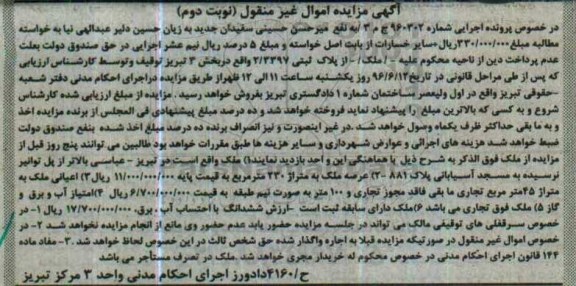 آگهی مزایده اموال غیر منقول (نوبت دوم)
در خصوص پرونده اجرایی شماره ۹۶۰۳۰۲ ج م ۳ به نفع میرحسن حسینی سفیدان جدید به زیان حسین دلیر عبدالهی نیا به خواسته
مطالبه مبلغ ۳۳۰/۰۰۰/۰۰۰ ریال+سایر خسارات از بابت اصل خواسته و مبلغ ۵ درصد ریال نیم عشر اجرایی در حق صندوق دولت بعلت
عدم پرداخت دین از ناحیه محکوم علیه - / ملک/ - از پلاک ثبتی ۲/۳۳۹۷ واقع دربخش ۳ تبریز توقیف وتوسط کارشناس ارزیابی
که پس از طی مراحل قانونی در تاریخ ۹۶/۶/۱۲ روز یکشنبه ساعت ۱۱ الی ۱۲ ظهراز طریق مزایده دراجرای احکام مدنی دفتر شعبه
-حقوقی تبریز واقع در اول ولیعصر ساختمان شماره ۱ دادگستری تبریز بفروش خواهد رسید . مزایده از مبلغ ارزیابی شده کارشناس
شروع و به کسی که بالاترین مبلغ را پیشنهاد نماید فروخته خواهد شد و ده درصد مبلغ پیشنهادی فی المجلس از برنده مزایده اخذ
و به ما بقی حداکثر ظرف یکماه وصول خواهد شد .در غیر اینصورت و نیز انصراف برنده ده درصد مبلغ اخذ شده بنفع صندوق دولت
ضبط خواهد شد هزینه های اجرائی و عوارض شهرداری و سایر هزینه ها طبق مقررات خواهد بود طالبین می توانند پنج روز قبل از
مزایده از ملک فوق الذکر به شرح ذیل با هماهنگی این واحد بازدید نمایند۱) ملک واقع است در تبریز - عباسی بالاتر از پل توانیر
نرسیده به مسجد آسیابانی پلاک ۸۸۱ ۲) عرصه ملک به متراژ ۲۳۰ مترمربع به قیمت پایه ۱۱/۰۰۰/۰۰۰/۰۰۰ ریال ۳) اعیانی ملک به
متراژ ۴۵متر مربع تجاری ما بقی فاقد مجوز تجاری و ۱۰۰ متر به صورت نیم طبقه به قیمت ۶/۷۰۰/۰۰۰/۰۰۰ ریال ۴)امتیاز آب و برق و
گاز ۵) ملک فوق تجاری می باشد ۶)ملک دارای سابقه ثبت است -ارزش ششدانگ با احتساب آب . برق. ۱۷/۷۰۰/۰۰۰/۰۰۰ ریال ۱- در
خصوص سرقفلی های توقیفی مالک می تواند در جلسه مزایده حضور یابد عدم حضور وی مانع از انجام مزایده نخواهد شد ۲- در
خصوص اموال غیر منقول در صورتیکه مزایده قبلا به اجاره واگذار شده حق شخص ثالث در این خصوص لحاظ خواهد شد .۳- مفاد ماده
۱۴۴ قانون اجرای احکام مدنی در خصوص محکوم له خریدار مجری خواهد شد .ملک در تصرف مستأجر می باشد
ح/۴۱۶۰دادورز اجرای احکام مدنی واحد ۳ مرکز تبریز